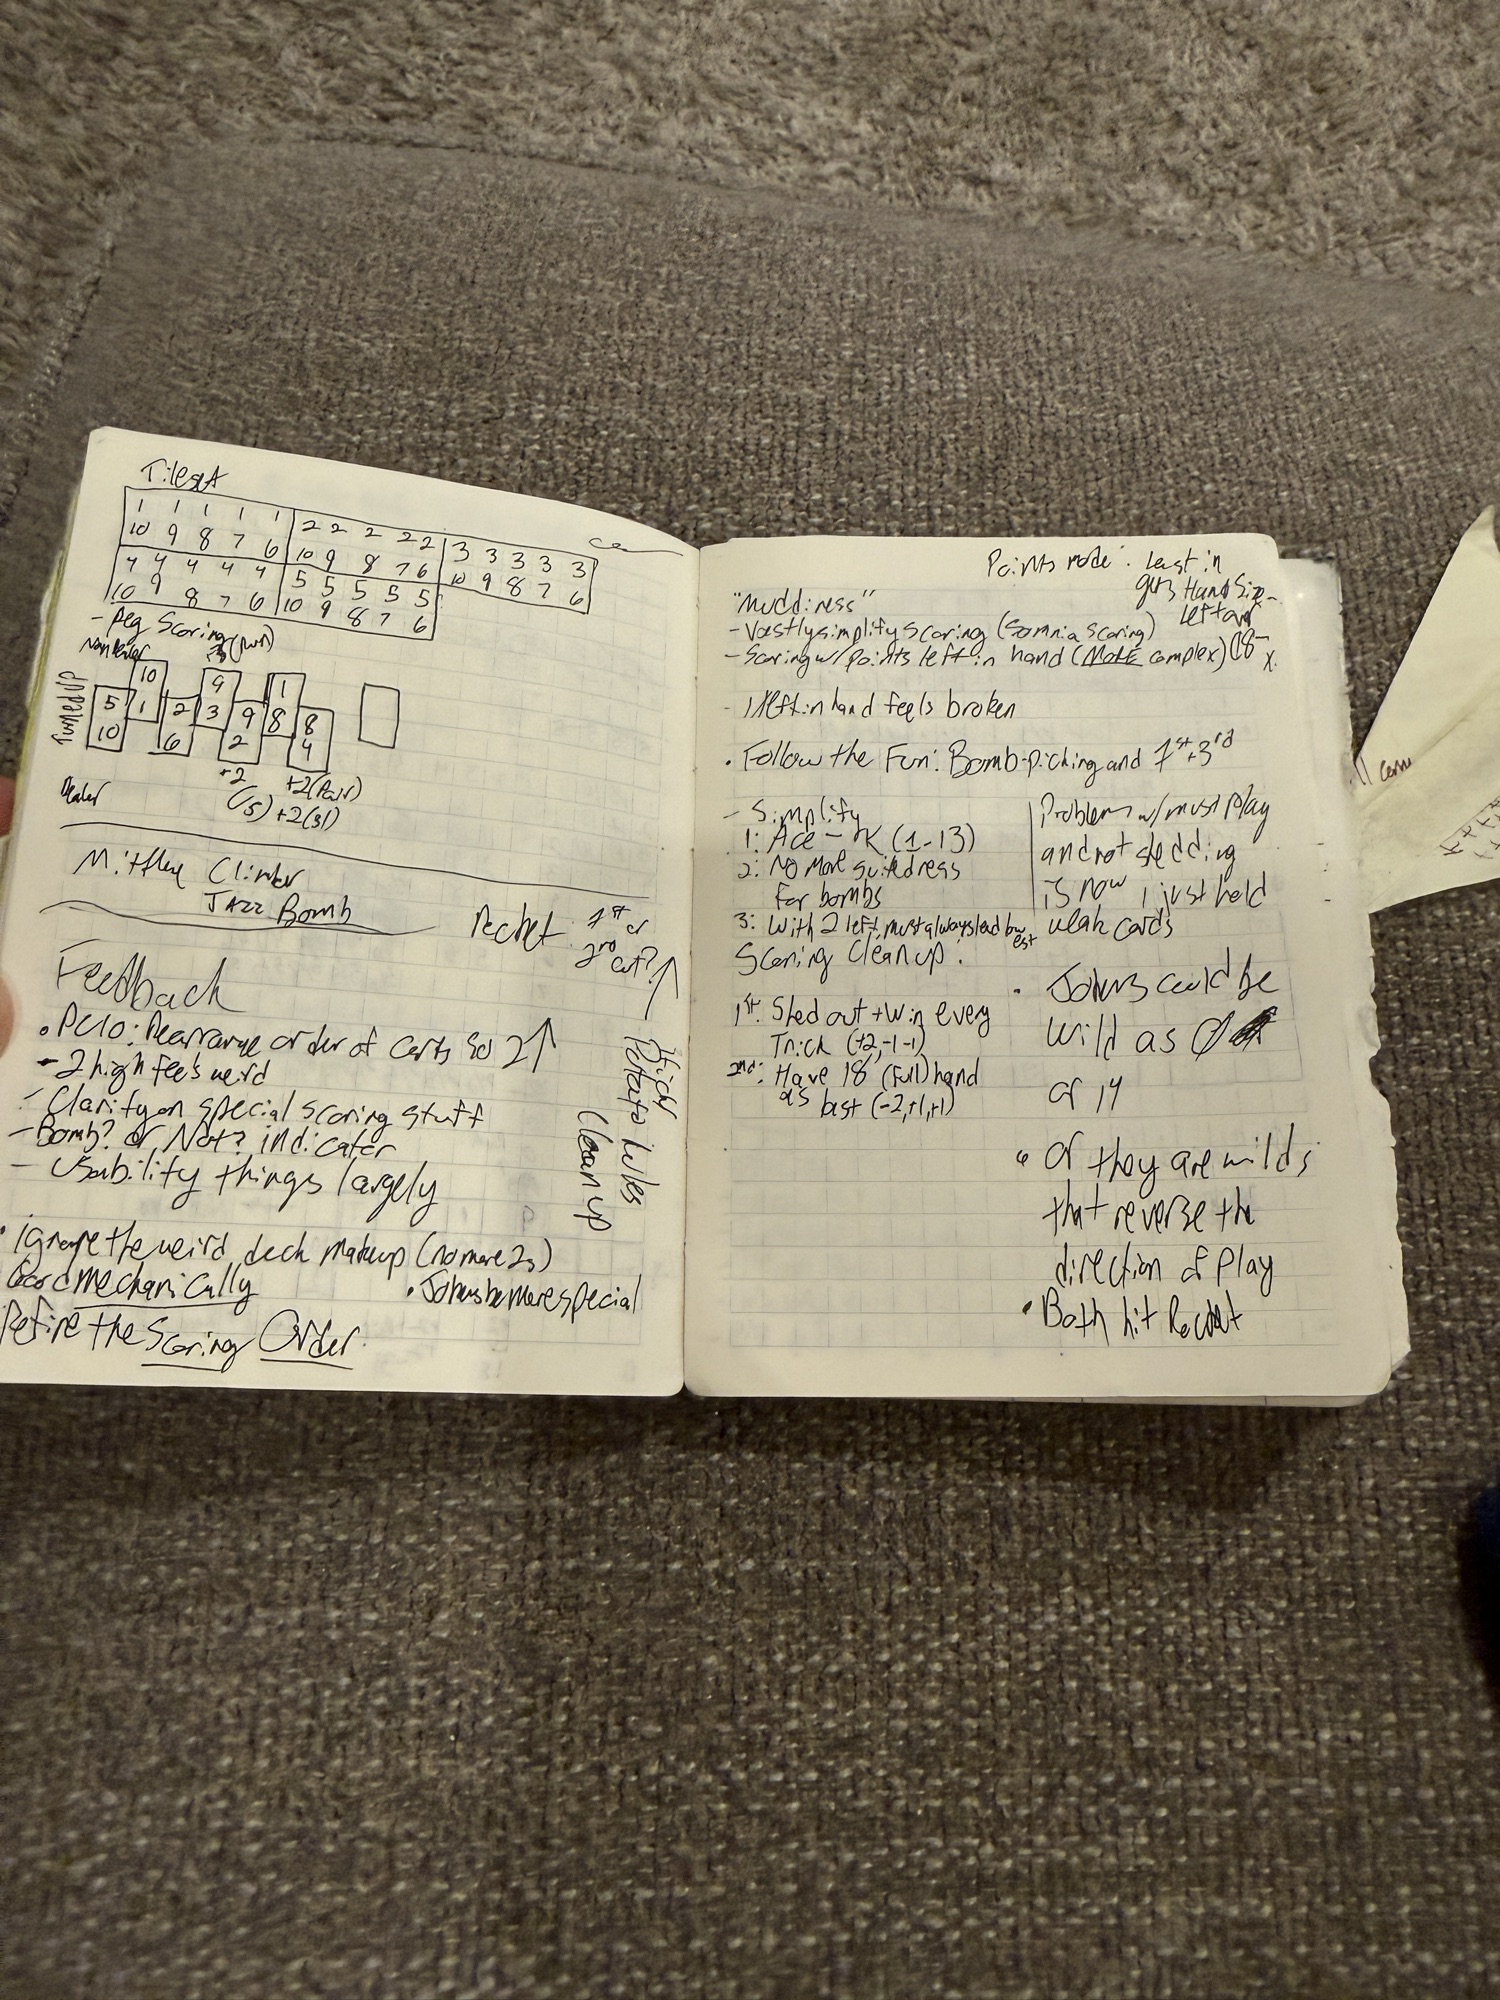 1 1 1 1 1 2 2 2 2 2 3 3 3 3 3
10 9 8 7 6 10 9 8 7 6 10 9 8 7 6
4 4 4 4 4 5 5 5 5 5
10 9 8 7 6 10 9 8 7 6
- Peg Scoring
10 9 1
5 1 2 3 9 8 8
10 6 2 4
+2 +2 (Pair)
(15) +2 (31)
Dealer
Climber
Jazz Bomb
1st or
2nd
out?
Feedback
• PCIO: Rearrange order of cards so 2↑
- 2 high feels weird
- Clarify on special scoring stuff
- Bomb? or Not? indicator
- Usability things largely
• ignore the weird deck makeup (no more 2s)
Good mechanically
• Jokers be more special
Refine the Scoring Order.
Potato rules
Clean up
Points mode: Least in
gets Hand Size
left over
"Muddiness"
- Vastly simplify scoring (Somnia scoring)
- Scoring w/ points left in hand (MORE complex) (18-
x.
- 1 left in hand feels broken
• Follow the Fun: Bomb-picking and 1st + 3rd
- Simplify
1: Ace - K (1-13)
2: No more suitedness
for bombs
3: With 2 left, must always lead lowest
Scoring Clean up:
1st: Shed out + Win every
Trick (+2,-1-1)
2nd: Have 18 (full) hand
as last (-2,+1,+1)
Problem w/ must play
and not shedding
is now I just hold
weak cards
• Jokers could be
wild as 0
or 14
• Or they are wilds
that reverse the
direction of play
• Both hit Rocket